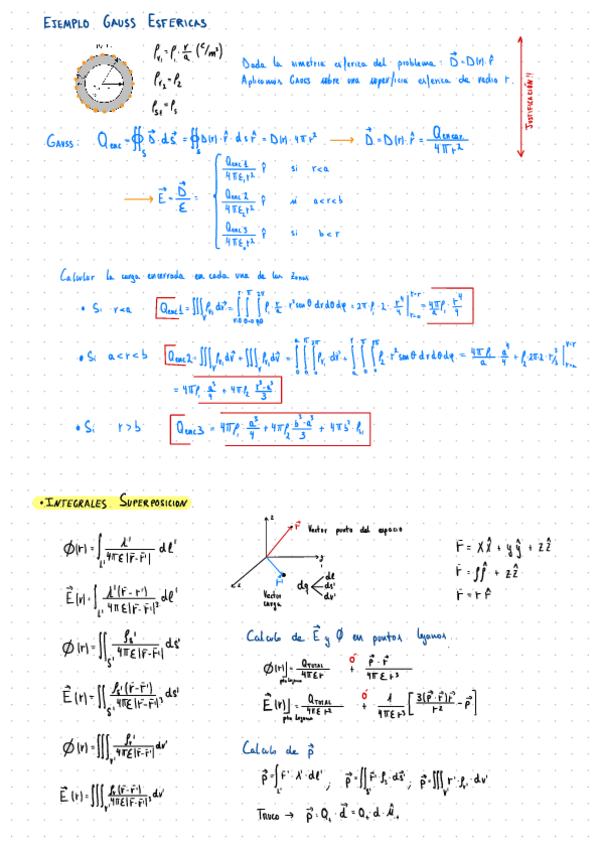 EJEMPLO GAUSS ESFERICAS
ρv₁ = ρ₁ · r/a (C/m³)
ρv₂ = ρ₂
ρs₁ = ρs
Dada la simetria esferica del problema: D⃗ = D(r) · r̂
Aplicamos GAUSS sobre una superficie esferica de radio r.
JUSTIFICACIÓN!!
GAUSS: Qenc = ∯s D⃗ · ds⃗ = ∯s D(r) · r̂ · ds r̂ = D(r) · 4πr² → D⃗ = D(r) · r̂ = Qencer/4πr²
→ E⃗ = D⃗/ε =
Qenc1/4πε₁r² r̂ si r<a
Qenc2/4πε₂r² r̂ si a<r<b
Qenc3/4πε₀r² r̂ si b<r
Calcular la carga encerrada en cada una de las zonas
• Si r<a Qenc1 = ∭ρv₁ dv = ∫∫∫ ρ₁ · r/a · r² senθ dr dθ dφ = 2π · ρ₁ · 2 · r⁴/4 = 4πρ₁/a · r⁴/4
• Si a<r<b Qenc2 = ∭ρv₁ dv + ∭ρv₂ dv = ∫∫∫ρv₁ · dv + ∫∫∫ρ₂ · r² senθ dr dθ dφ = 4πρ₁/a · a⁴/4 + ρ₂ 2π·2·r³/3
= 4πρ₁ · a³/4 + 4πρ₂ r³-a³/3
• Si r>b Qenc3 = 4πρ₁ · a³/4 + 4πρ₂ b³-a³/3 + 4πb² · ρs₁
• INTEGRALES SUPERPOSICION
Ø(r) = ∫L' λ'/4πε|r̄-r̄'| dl'
E⃗(r) = ∫L' λ'(r̄-r̄')/4πε|r̄-r̄'|³ dl'
Ø(r) = ∬s' ρs'/4πε|r̄-r̄'| ds'
E⃗(r) = ∬s' ρs'(r̄-r̄')/4πε|r̄-r̄'|³ ds'
Ø(r) = ∭v' ρv'/4πε|r̄-r̄'| dv'
E⃗(r) = ∭v' ρv(r̄-r̄')/4πε|r̄-r̄'|³ dv'
z
r⃗ Vector punto del espacio
y
x
r⃗'
Vector carga
dq
dl
ds'
dv'
r̄ = xx̂ + yŷ + zẑ
r̄ = ρρ̂ + zẑ
r̄ = r r̂
Calculo de E⃗ y Ø en puntos lejanos
Ø(r)| pto lejano = QTOTAL/4πεr + p⃗ · r⃗/4πεr³
E⃗(r)| pto lejano = QTOTAL/4πεr² + 1/4πεr³ [3(p⃗ · r⃗)r⃗/r² - p⃗]
Calculo de p⃗
p⃗ = ∫L' r̄' · λ' · dl' ; p⃗ = ∬s' r̄' · ρs · ds' ; p⃗ = ∭v' r' · ρv · dv'
TRUCO → p⃗ = Q₊ · d⃗ = Q₊ · d · û₊